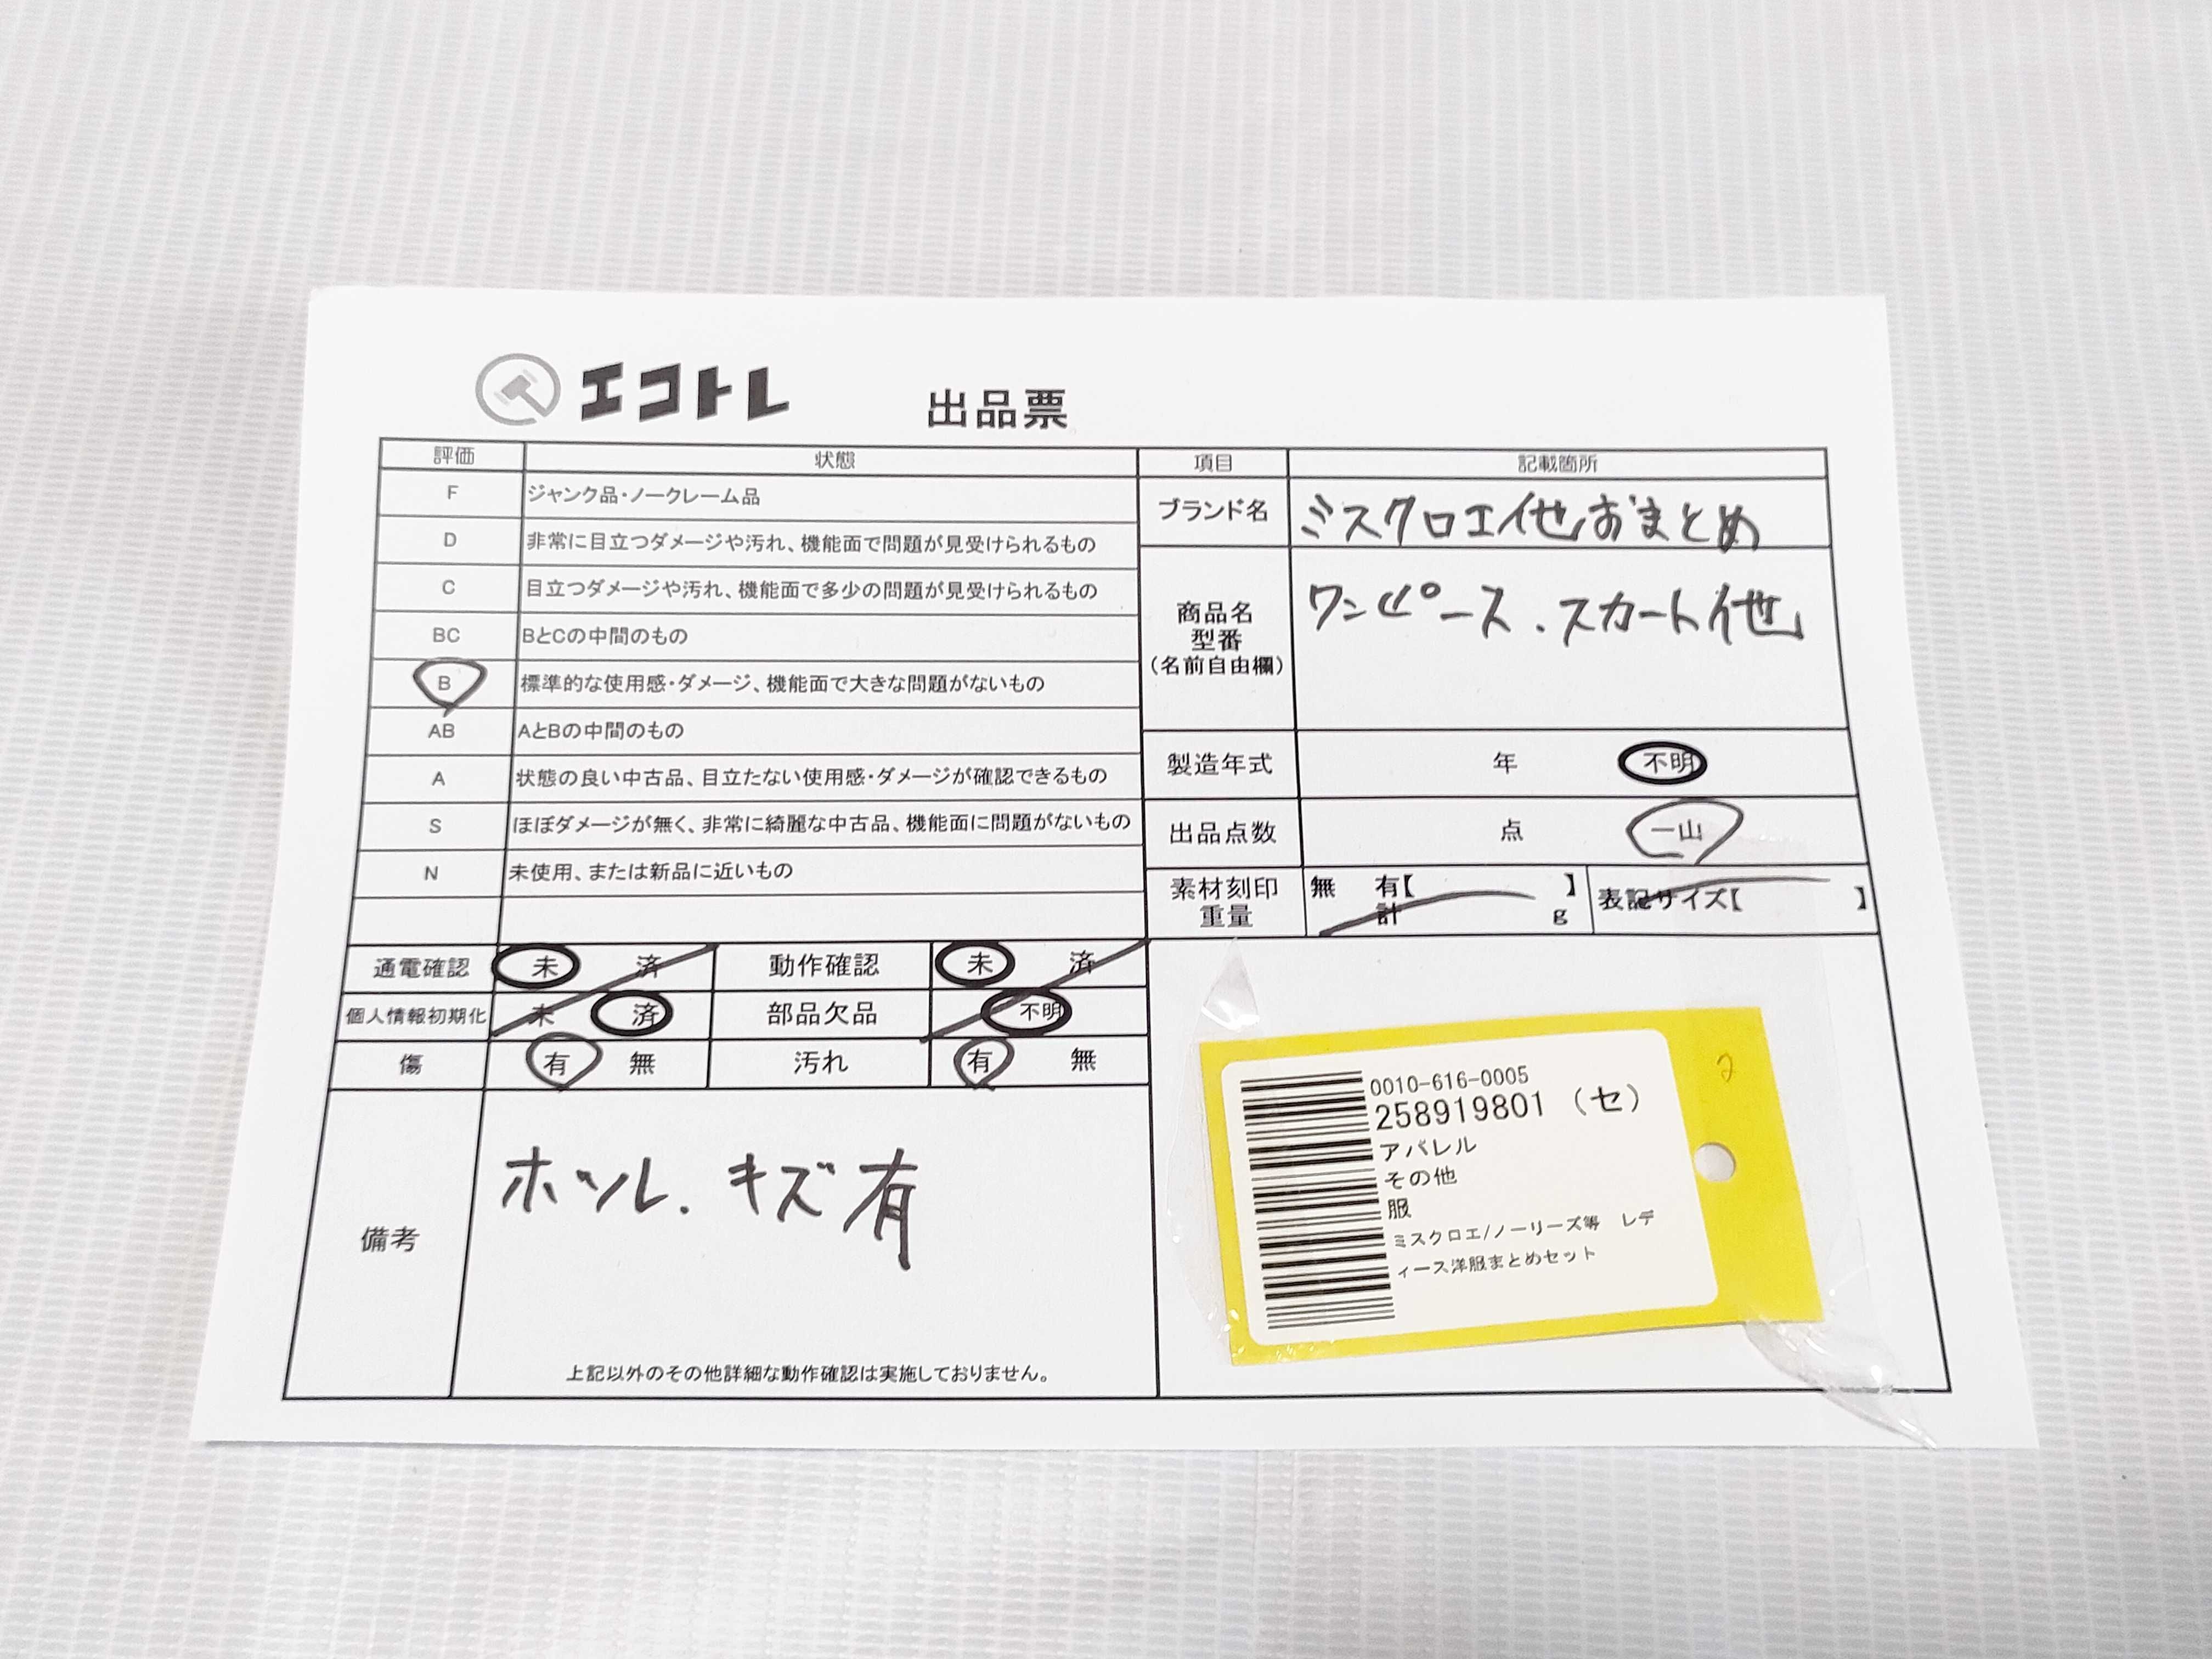 エコトレ 出品票
評価 状態
F ジャンク品・ノークレーム品
D 非常に目立つダメージや汚れ、機能面で問題が見受けられるもの
C 目立つダメージや汚れ、機能面で多少の問題が見受けられるもの
BC BとCの中間のもの
B 標準的な使用感・ダメージ、機能面で大きな問題がないもの
AB AとBの中間のもの
A 状態の良い中古品、目立たない使用感・ダメージが確認できるもの
S ほぼダメージが無く、非常に綺麗な中古品、機能面に問題がないもの
N 未使用、または新品に近いもの
項目 記載箇所
ブランド名 ミスクロエ他おまとめ
商品名
型番
(名前自由欄)
ワンピース.スカート他
製造年式 年 不明
出品点数 点 一山
素材刻印
重量
無 有【 】
計 g
表記サイズ【 】
通電確認 未 済 動作確認 未 済
個人情報初期化 未 済 部品欠品 不明
傷 有 無 汚れ 有 無
備考
ホツレ.キズ有
上記以外のその他詳細な動作確認は実施しておりません。
2
0010-616-0005
258919801 (セ)
アパレル
その他
服
ミスクロエ/ノーリーズ等 レデ
ィース洋服まとめセット